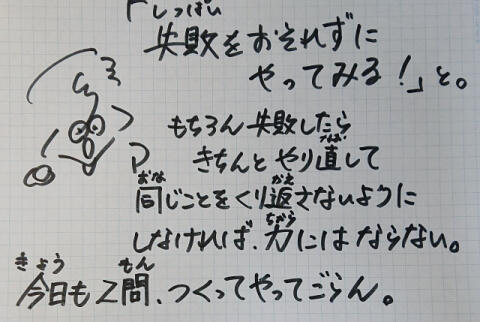 「失敗をおそれずに
やってみる!」と。
もちろん失敗したら
きちんとやり直して
同じことをくり返さないように
しなければ、力にはならない。
今日も2問、つくってやってごらん。